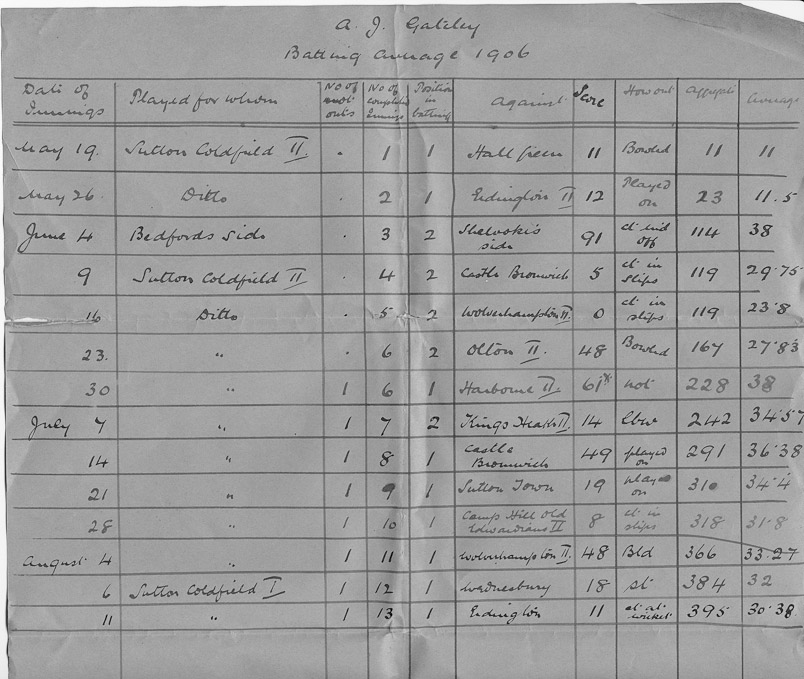 A. J. Gateley
Batting Average 1906
Date of Innings Played for whom No of not outs No of completed Innings Position in batting Against Score How out Aggregate Average
May 19. Sutton Coldfield II. . 1 1 Hall Green 11 Bowled 11 11
May 26. Ditto . 2 1 Erdington II 12 Played on 23 11.5
June 4 Bedfords side . 3 2 side 91 ct mid off 114 38
9 Sutton Coldfield II . 4 2 Castle Bromwich 5 ct in slips 119 29.75
16 Ditto . 5 2 Wolverhampton II. 0 ct in slips 119 23.8
23. " . 6 2 Olton II. 48 Bowled 167 27.83
30 " 1 6 1 Harborne II. 61* not 228 38
July 7 " 1 7 2 Kings Heath II. 14 lbw 242 34.57
14 " 1 8 1 Castle Bromwich 49 played on 291 36.38
21 " 1 9 1 Sutton Town 19 played on 310 34.4
28 " 1 10 1 Camp Hill Old Edwardians II 8 ct in slips 318 31.8
August 4 " 1 11 1 Wolverhampton II. 48 Bld 366 33.27
6 Sutton Coldfield I 1 12 1 Wednesbury 18 st 384 32
11 " 1 13 1 Erdington 11 ct at wicket 395 30.38